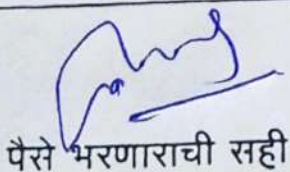 पैसे भरणाराची सही